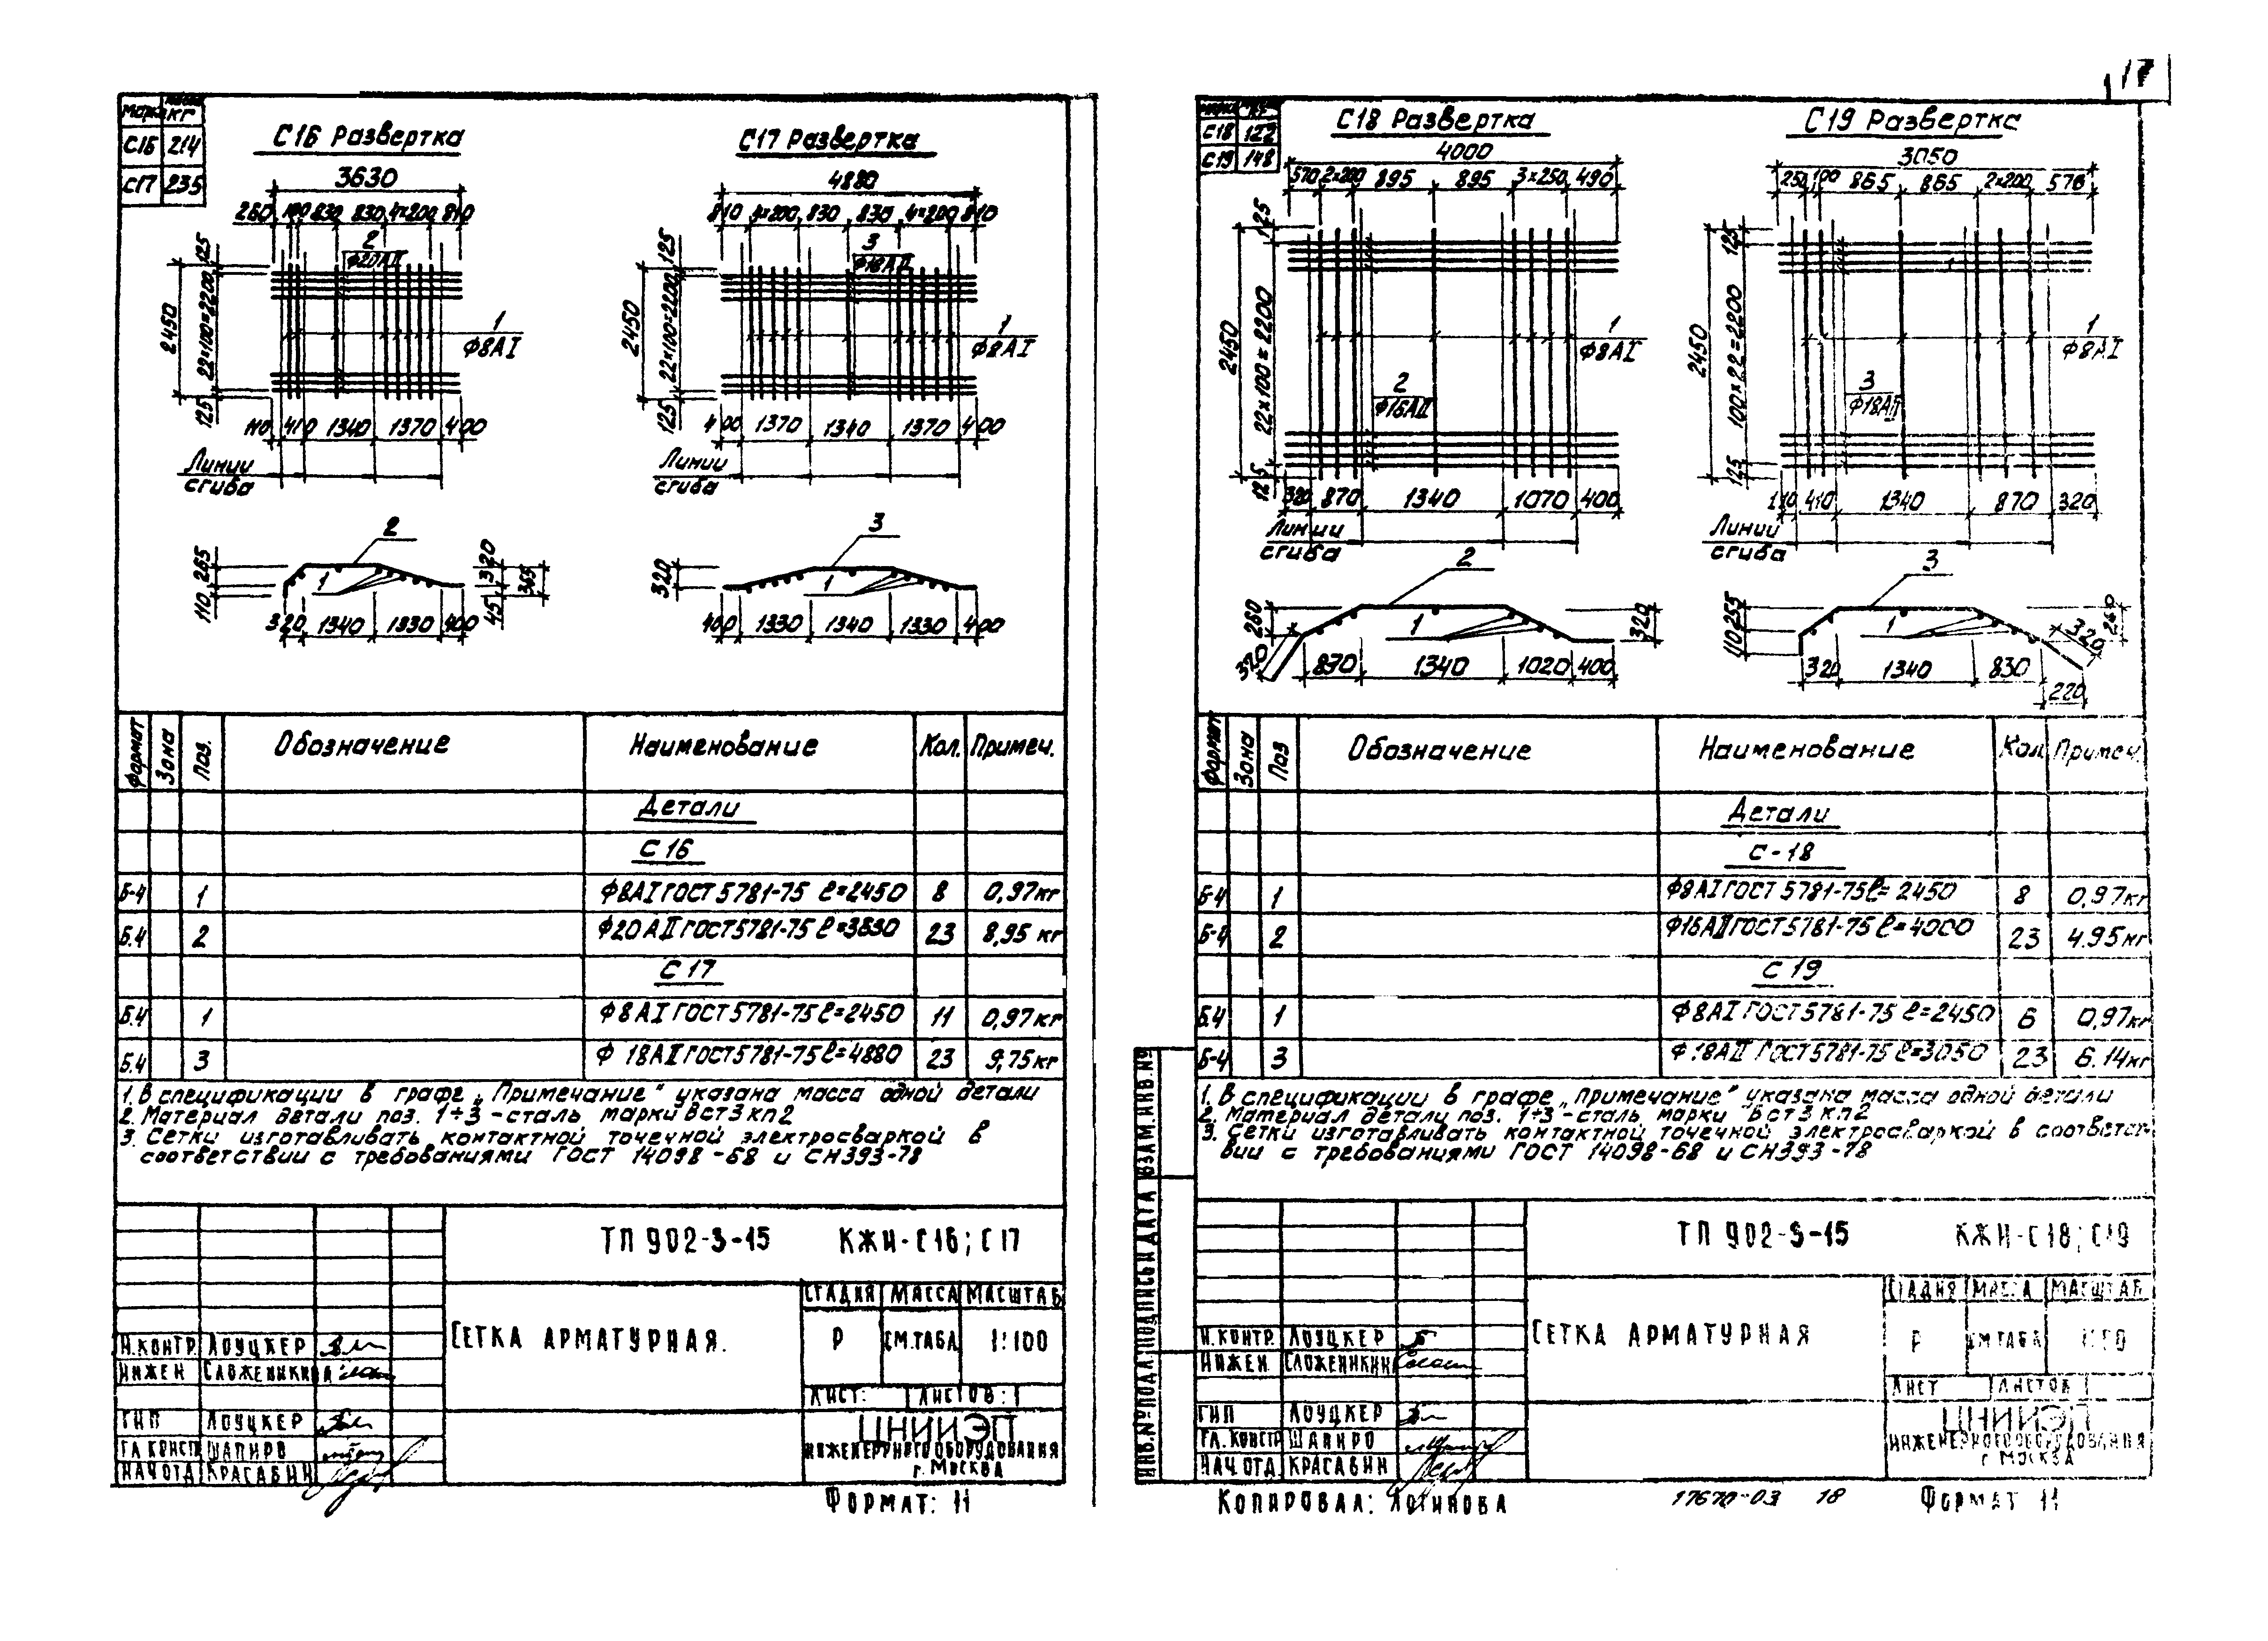 17
Марка Масса кг
С16 214
С17 235
С16 Развертка
3630
260 100 830 830 4×200 810
2
Ф20АII
125
22×100=2200
2450
125
1
Ф8АI
110 410 1340 1370 400
Линии
сгиба
2
265
110
1
320
45
365
320 1340 1330 400
С17 Развертка
4880
810 4×200 830 830 4×200 810
3
Ф18АII
125
22×100=2200
2450
125
1
Ф8АI
400 1370 1340 1370 400
Линии
сгиба
3
320
1
400 1330 1340 1330 400
Формат Зона Поз. Обозначение Наименование Кол. Примеч.
Детали
С 16
Б-4 1 Ф8АI ГОСТ 5781-75 ℓ=2450 8 0,97кг
Б.4 2 Ф20 АII ГОСТ 5781-75 ℓ=3630 23 8,95 кг
С 17
Б.4 1 Ф8АI ГОСТ 5781-75 ℓ=2450 11 0,97кг
Б.4 3 Ф 18АII ГОСТ 5781-75 ℓ=4880 23 9,75кг
1. В спецификации в графе „Примечание" указана масса одной детали
2. Материал детали поз. 1÷3 - сталь марки Вст3кп2
3. Сетки изготавливать контактной точечной электросваркой в
соответствии с требованиями ГОСТ 14098-68 и СН393-78
ТП 902-3-15 КЖИ-С16; С17
СЕТКА АРМАТУРНАЯ.
СТАДИЯ МАССА МАСШТАБ
Р СМ.ТАБЛ 1:100
ЛИСТ: ЛИСТОВ: 1
Н.КОНТР. ЛОУЦКЕР
ИНЖЕН СЛОЖЕНИКИНА
ГИП ЛОУЦКЕР
ГЛ КОНСТР ШАПИРО
НАЧ ОТД КРАСАВИН
ЦНИИЭП
ИНЖЕНЕРНОГО ОБОРУДОВАНИЯ
г. МОСКВА
ФОРМАТ: 11
Марка Масса кг
С18 122
С19 148
С18 Развертка
4000
570 2×200 895 895 3×250 490
125
22×100=2200
2450
125
1
Ф8АI
2
Ф16АII
320 870 1340 1070 400
Линии
сгиба
2
260
320
1
320
830 1340 1020 400
С19 Развертка
3050
250 100 865 865 2×200 570
125
100×22=2200
2450
125
1
Ф8АI
3
Ф18АII
110 410 1340 870 320
Линии
сгиба
3
255
110
1
260
320
320 1340 830
220
Формат Зона Поз Обозначение Наименование Кол. Примеч.
Детали
С-18
Б-4 1 Ф8АI ГОСТ 5781-75 ℓ=2450 8 0,97кг
Б-4 2 Ф16АII ГОСТ 5781-75 ℓ=4000 23 4.95кг
С 19
Б.4 1 Ф8АI ГОСТ 5781-75 ℓ=2450 6 0,97кг
Б-4 3 Ф18АII ГОСТ 5781-75 ℓ=3050 23 6.14кг
1. В спецификации в графе „Примечание" указана масса одной детали
2. Материал детали поз. 1÷3 - сталь марки Вст3кп2
3. Сетки изготавливать контактной точечной электросваркой в соответст
вии с требованиями ГОСТ 14098-68 и СН393-78
ИНВ.№ ПОДЛ. ПОДПИСЬ И ДАТА ВЗАМ.ИНВ.№
ТП 902-3-15 КЖИ-С18; С19
СЕТКА АРМАТУРНАЯ
СТАДИЯ МАССА МАСШТАБ
Р СМ.ТАБЛ 1:50
ЛИСТ ЛИСТОВ 1
Н.КОНТР. ЛОУЦКЕР
ИНЖЕН СЛОЖЕНИКИН
ГИП ЛОУЦКЕР
ГЛ. КОНСТР ШАПИРО
НАЧ.ОТД КРАСАВИН
ЦНИИЭП
ИНЖЕНЕРНОГО ОБОРУДОВАНИЯ
г. МОСКВА
КОПИРОВАЛ: ЛОГИНОВА 17670-03 18 ФОРМАТ 11